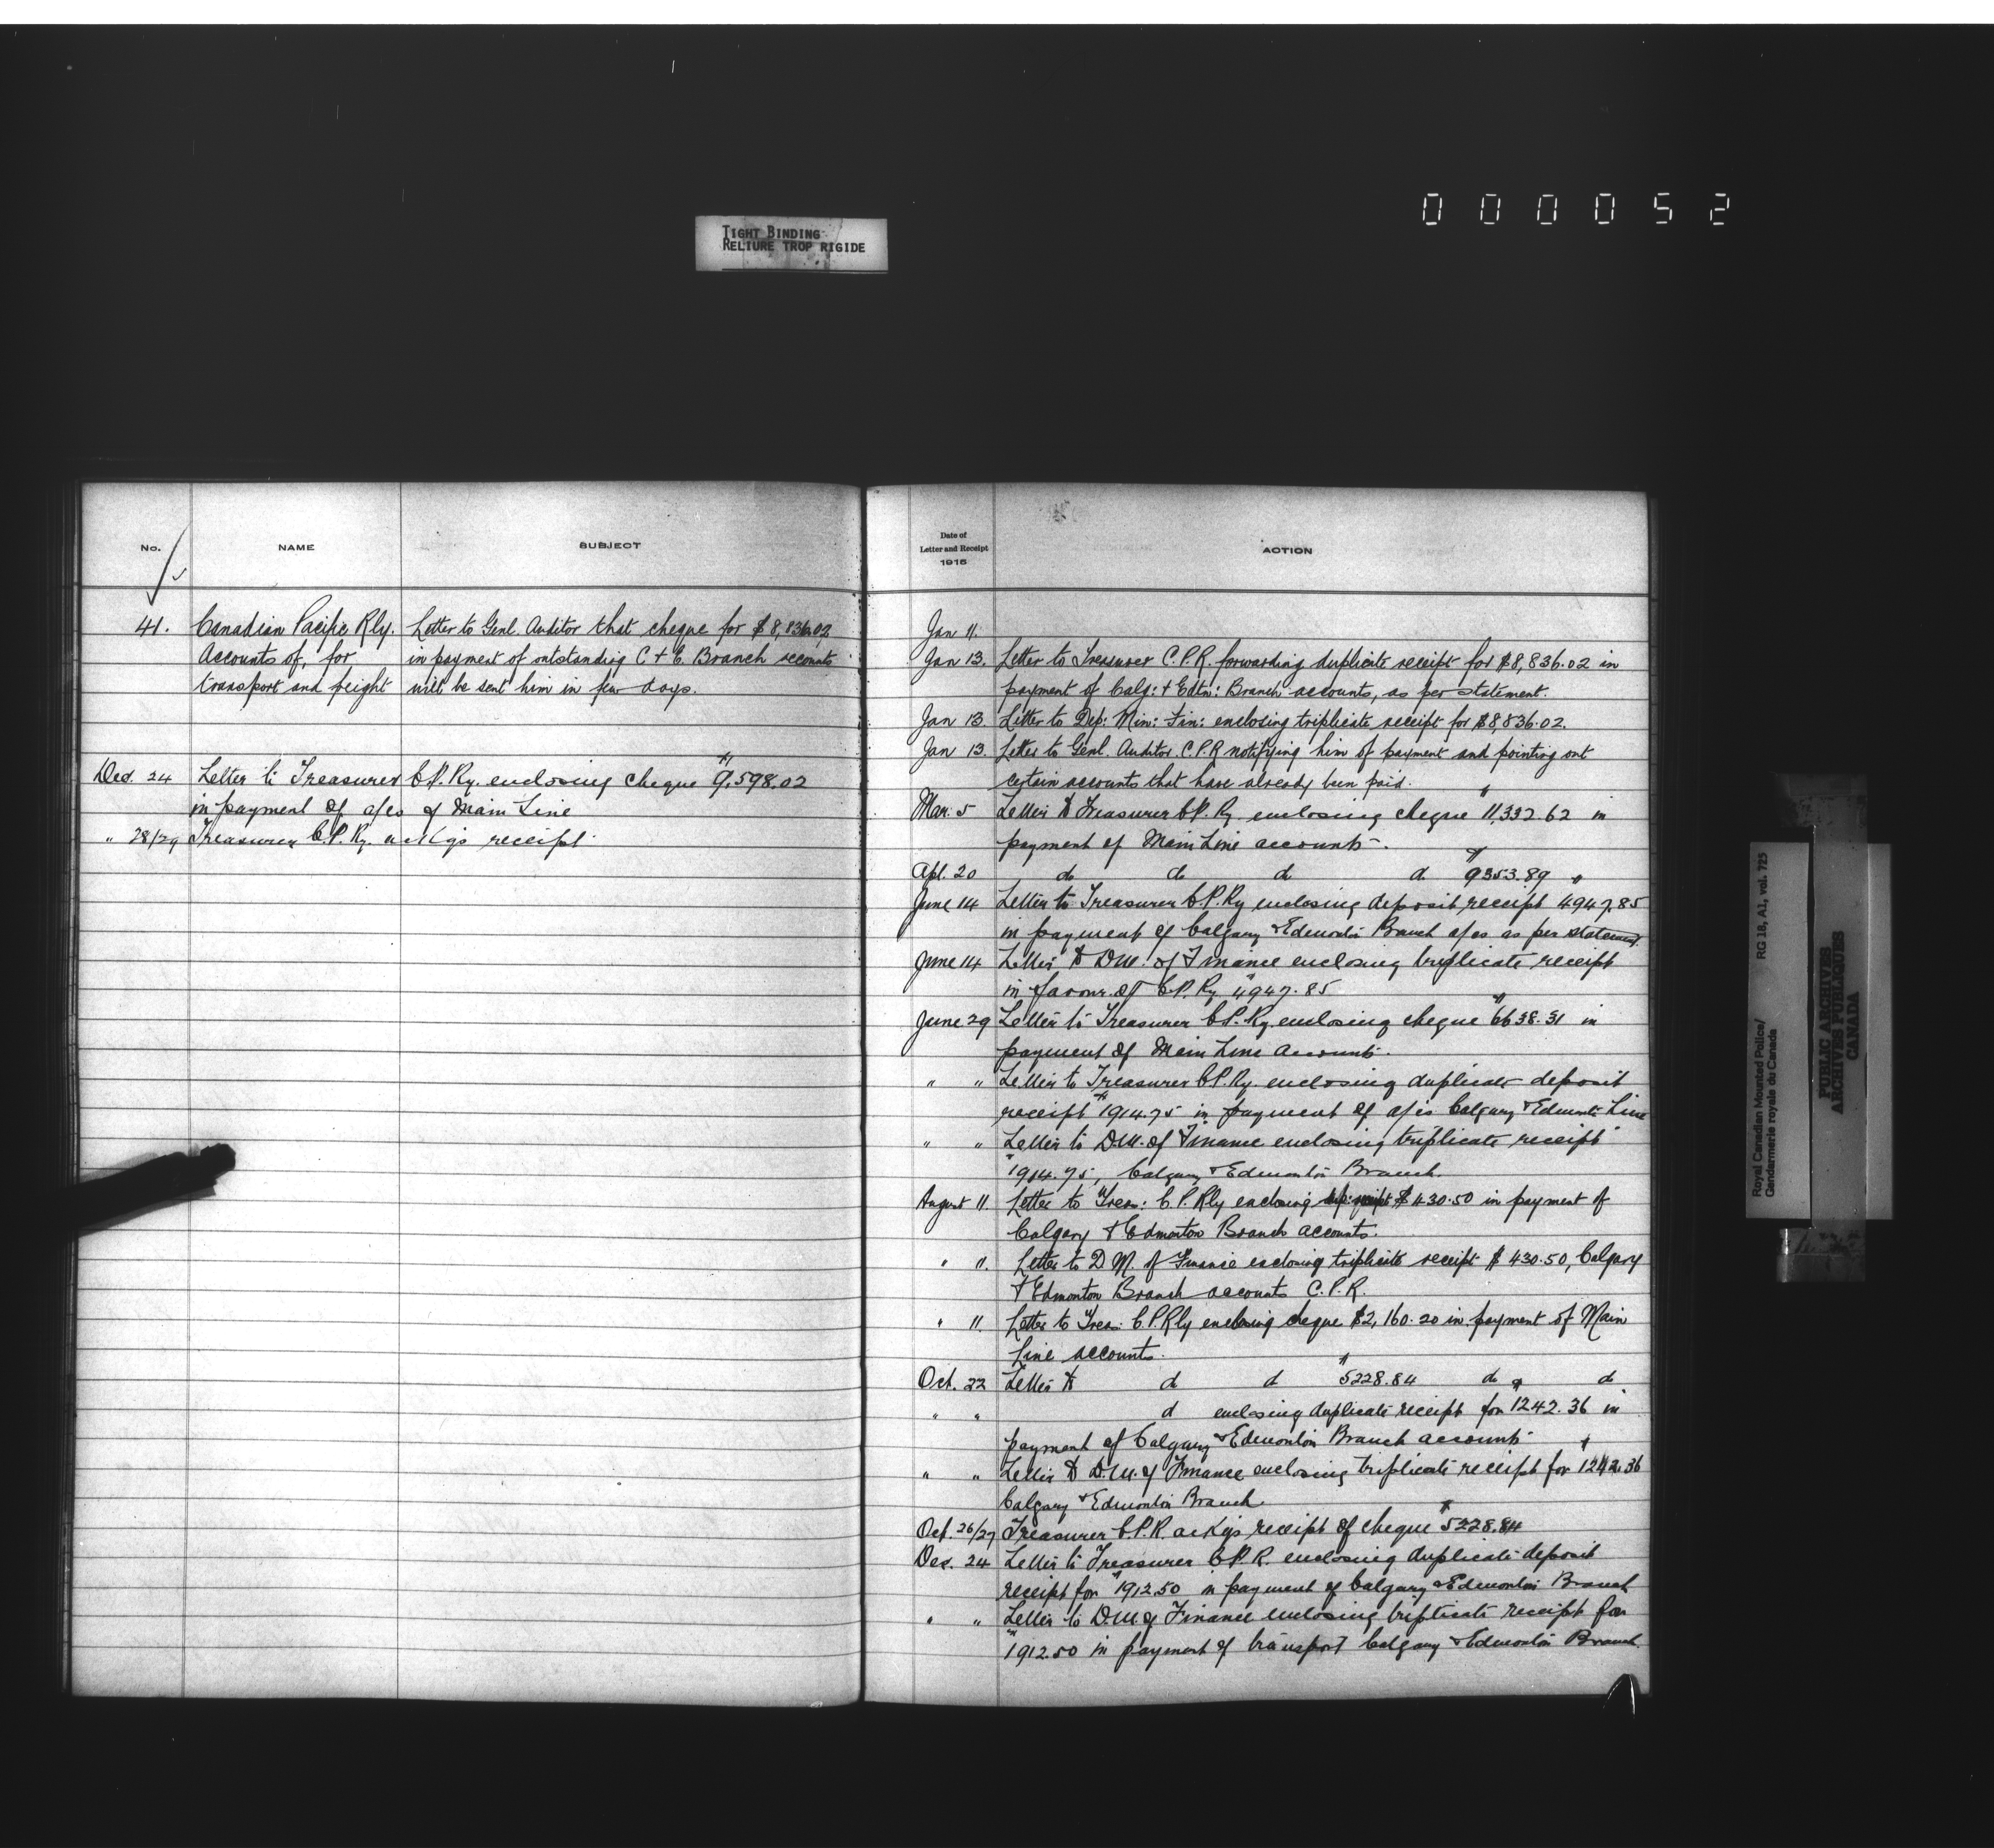 000052
TIGHT BINDING
RELIURE TROP RIGIDE
No.
NAME
SUBJECT
41. Canadian Pacific Rly. Letter to Genl. Auditor that cheque for $8,836.02
Accounts of, for in payment of outstanding C + E. Branch accounts
transport and freight will be sent him in few days.
Dec. 24 Letter to Treasurer C.P. Ry. enclosing cheque $9,598.02
in payment of a/cs of Main Line
" 28/29 Treasurer C.P. Ry. ackgs receipt.
Date of
Letter and Receipt
1915
ACTION
Jan 11.
Jan 13. Letter to Treasurer C.P.R. forwarding duplicate receipt for $8,836.02 in
payment of Calg: + Edtn: Branch accounts, as per statement.
Jan 13. Letter to Dep: Min: Fin: enclosing triplicate receipt for $8,836.02.
Jan 13. Letter to Genl. Auditor C.P.R notifying him of payment and pointing out
certain accounts that have already been paid.
Mar. 5 Letter to Treasurer C.P. Ry. enclosing cheque $11,332.62 in
payment of Main Line accounts.
Apl. 20 do do do do $9353.89 "
June 14 Letter to Treasurer C.P. Ry enclosing deposit receipt 4947.85
in payment of Calgary & Edmonton Branch a/cs as per statement.
June 14 Letter to D.M. of Finance enclosing triplicate receipt
in favour of C.P. Ry. $4947.85
June 29 Letter to Treasurer C.P. Ry. enclosing cheque $6638.31 in
payment of Main Line accounts.
" " Letter to Treasurer C.P. Ry. enclosing duplicate deposit
receipt $1914.75 in payment of a/cs Calgary & Edmonton Line
" " Letter to D.M. of Finance enclosing triplicate receipt
$1914.75, Calgary & Edmonton Branch
August 11. Letter to Treas: C.P. Rly enclosing dep: receipt $430.50 in payment of
Calgary & Edmonton Branch accounts.
" 11. Letter to D.M. of Finance enclosing triplicate receipt $430.50, Calgary
& Edmonton Branch accounts C.P.R.
" 11. Letter to Treas: C.P. Rly enclosing cheque $2,160.20 in payment of Main
Line accounts.
Oct. 22 Letter to do do $5228.84 do do
" " do enclosing duplicate receipt for $1242.36 in
payment of Calgary & Edmonton Branch accounts
" " Letter to D.M. of Finance enclosing triplicate receipt for $1242.36
Calgary & Edmonton Branch.
Oct. 26/27 Treasurer C.P.R. ackgs receipt of cheque $5228.84
Dec. 24 Letter to Treasurer C.P.R. enclosing duplicate deposit
receipt for $1912.50 in payment of Calgary & Edmonton Branch
" " Letter to D.M. of Finance enclosing triplicate receipt for
$1912.50 in payment of transport Calgary & Edmonton Branch.
Royal Canadian Mounted Police/ RG 18, A1, vol. 725
Gendarmerie royale du Canada
PUBLIC ARCHIVES
ARCHIVES PUBLIQUES
CANADA